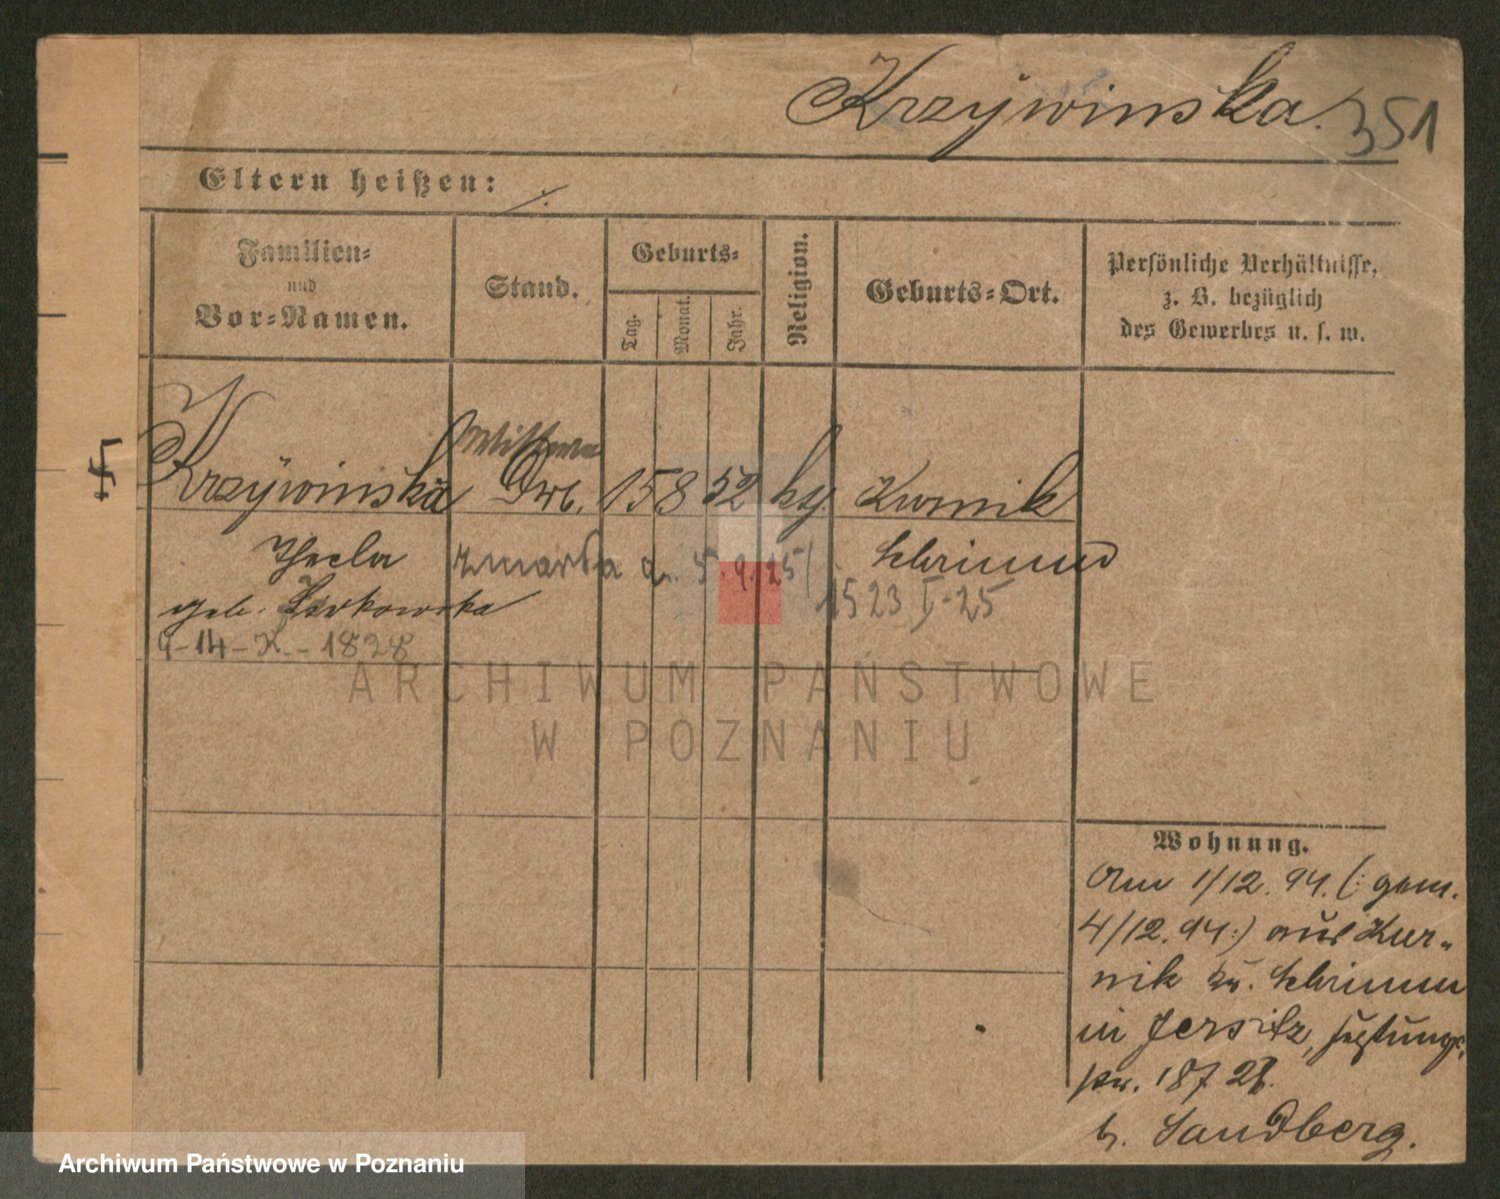 Krzywinska. 351
Eltern heißen: /.
Familien-
und
Vor-Namen.
Stand.
Geburts-
Tag.
Monat.
Jahr.
Religion.
Geburts-Ort.
Persönliche Verhältnisse,
z. B. bezüglich
des Gewerbes u. s. w.
Wittwe
Krzywinska Arb. 15 8 52 kth. Kurnik
Thecla
zmarła d. 5.9.25
Schrimm
1523 I-25
geb.
9-14-K-1828
ARCHIWUM PAŃSTWOWE
W POZNANIU
Wohnung.
Am 1/12. 94. (: gem.
4/12. 94 :) aus Kur-
nik Kr. Schrimm
in Jersitz,
187 28.
b. Sandberg.
Archiwum Państwowe w Poznaniu